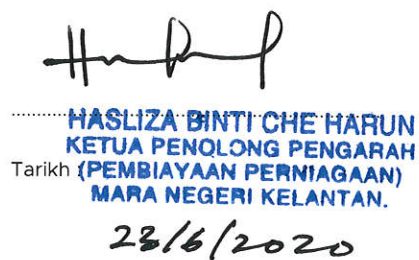 HASLIZA BINTI CHE HARUN
KETUA PENOLONG PENGARAH
Tarikh : (PEMBIAYAAN PERNIAGAAN)
MARA NEGERI KELANTAN.
23/6/2020